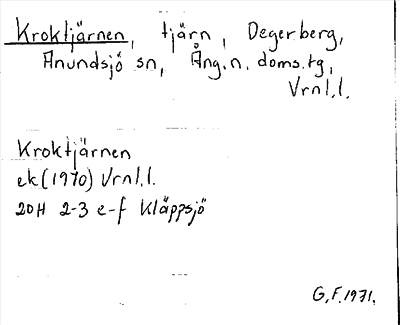 Kroktjärnen, tjärn, Degerberg,
Anundsjö sn, Ång.n.doms.tg,
Vrnl.l.
Kroktjärnen
ek(1970) Vrnl.l.
20H 2-3 e-f Kläppsjö
G.F.1971.